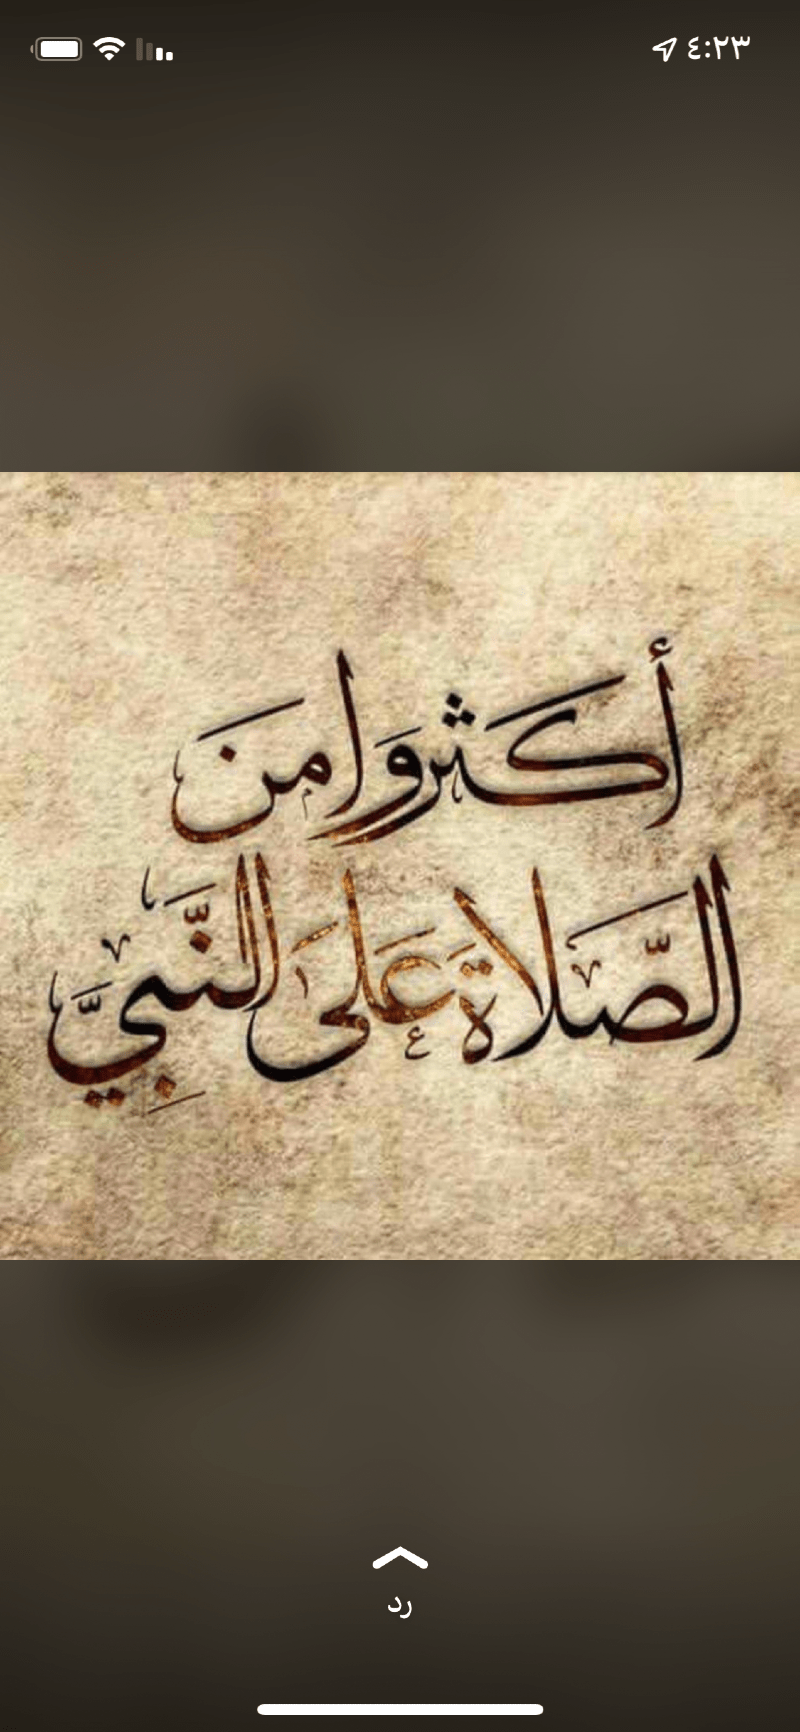 ٤:٢٣
أكثروا منَ
الصَّلاةِ عَلَى النَّبِيَّ
رد